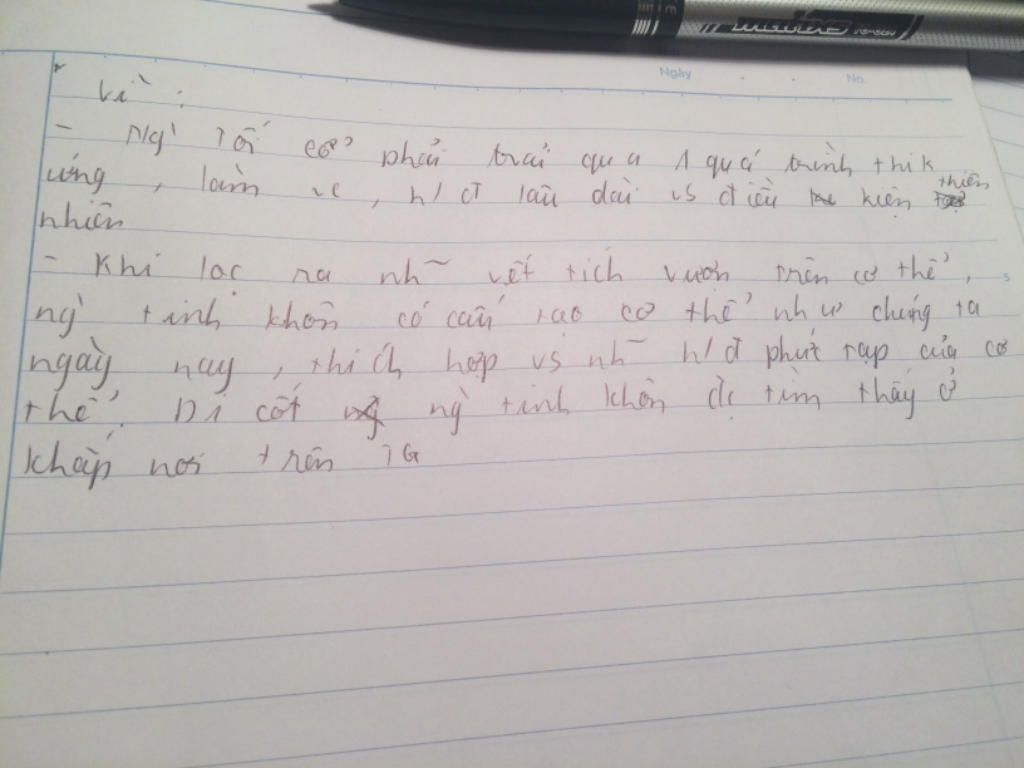 Ngày No.
Vì :
- Ng' Tối cơ' phải trải qua 1 quá trình thik
ứng, làm vc, h/đ lâu dài vs điều kiện thiên
nhiên
- Khi lọc ra nh~ vết tích vượn trên cơ thể,
ng` tinh khôn có cấu tạo cơ thể như chúng ta
ngày nay, thích hợp vs nh~ h/đ phức tạp của cơ
thể. Di cốt ng` tinh khôn đc tìm thấy ở
khắp nơi trên TG